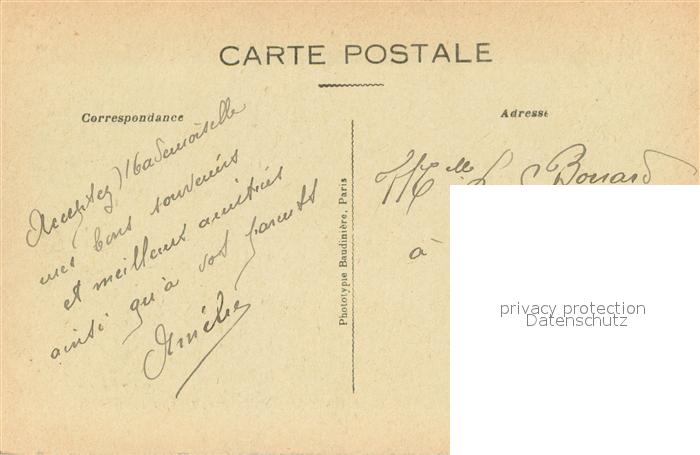 CARTE POSTALE
Correspondance
Acceptez Mademoiselle
mes bons souvenirs
et meilleurs amitiés
ainsi qu'à vos parents
Amélie
Phototypie Baudinière, Paris
Adresse
Melle
à
privacy protection
Datenschutz